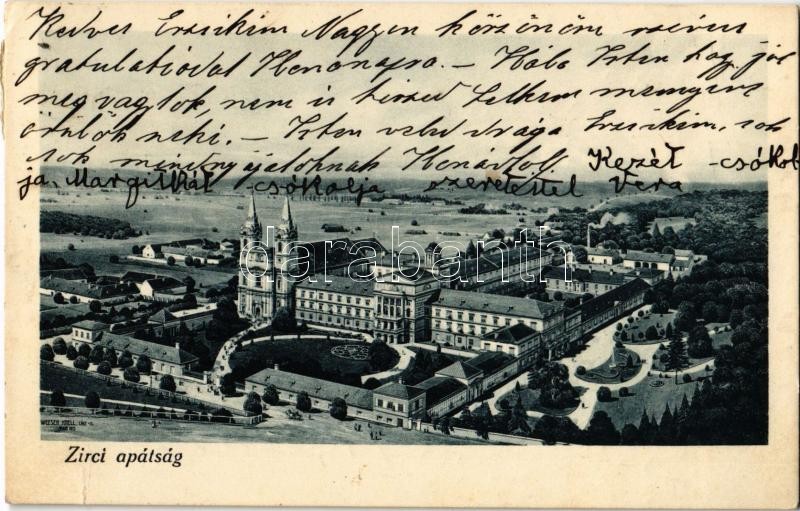 Kedves Erzsikém Nagyon köszönöm szives
gratulatiodat Honornapra. – Hála Isten hogy jól
meg vagytok, nem is hiszed Lelkem mennyire
örülök neki. – Isten veled drága Erzsikém, sok
sok Kezét csókol
ja Margitkát csókolja szeretettel Vera
darabanth
Zirci apátság